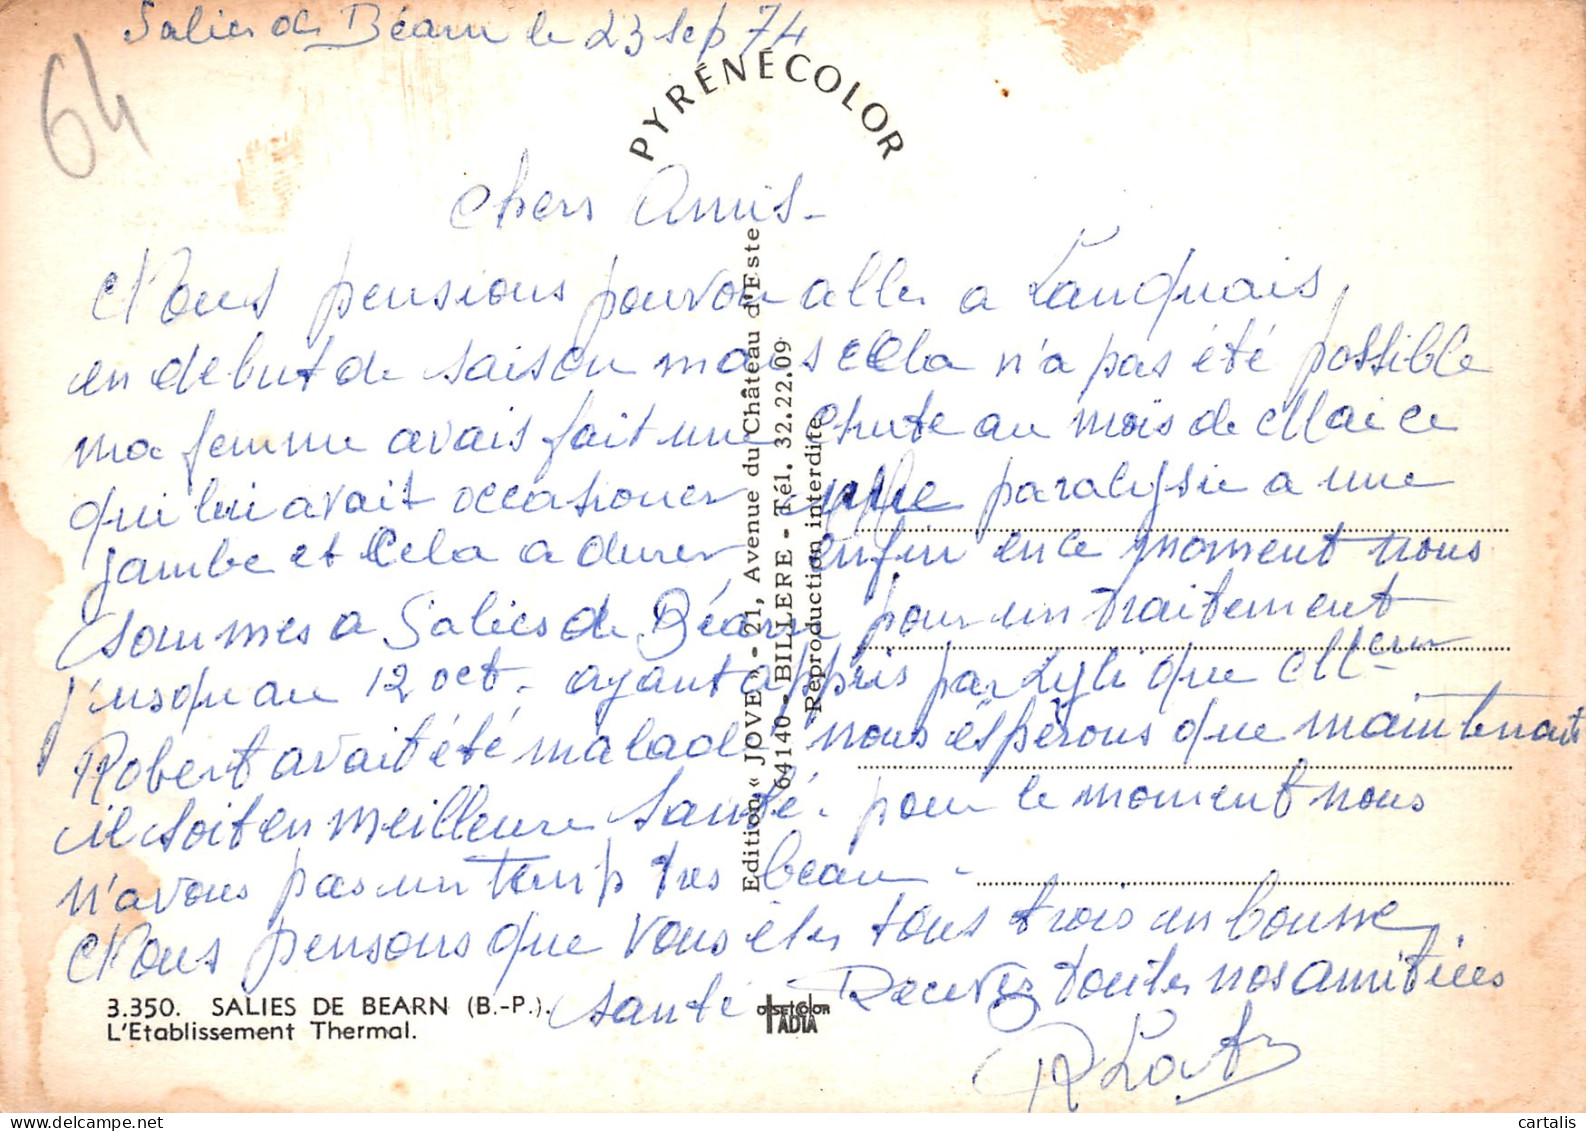 Salies de Béarn le 23 sep 74
64
PYRÉNÉCOLOR
Chers Amis -
Nous pensions pouvoir aller a Lanquais,
en debut de saison mais cela n'a pas été possible
ma femme avais fait une Chute au mois de Mai ce
qui lui avait occasioner une paralysie a une
jambe et Cela a durer enfin en ce moment nous
sommes a Salies de Béarn pour un traitement
jusqu au 12 oct. ayant appris par que Mr
Robert avait été malade nous éspèrons que maintenant
il soit en meilleure Santé. pour le moment nous
n'avons pas un temp tres beau -
Nous pensons que vous êtes tous trois en bonne
santé Recevez toutes nos amitiées
Edition « JOVE » - 21, Avenue du Château d'Este
64140 - BILLERE - Tél. 32.22.09
Reproduction interdite
3.350. SALIES DE BEARN (B.-P.).
L'Etablissement Thermal.
OFFSETCOLOR
IADIA
cartalis